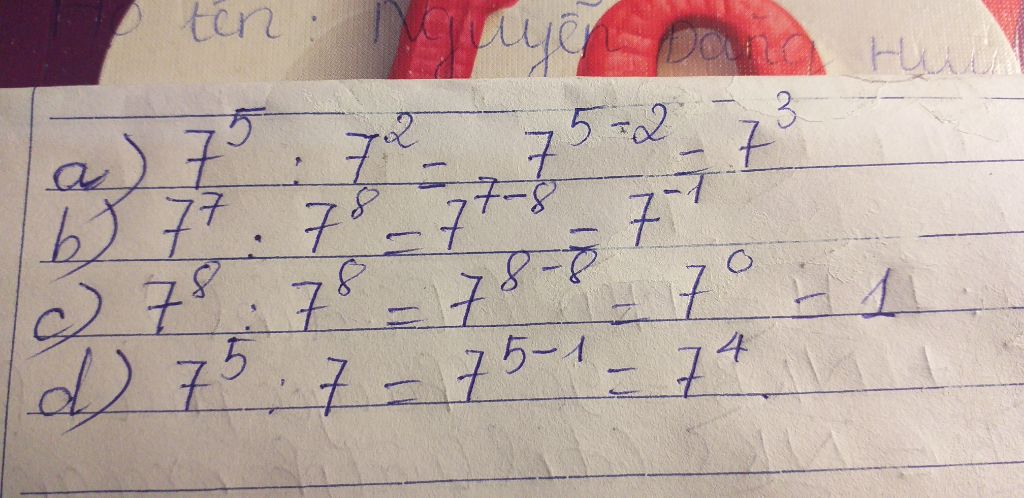 Họ tên : Nguyễn Đăng
a) 7⁵ : 7² = 7⁵⁻² = 7³
b) 7⁷ : 7⁸ = 7⁷⁻⁸ = 7⁻¹
c) 7⁸ : 7⁸ = 7⁸⁻⁸ = 7⁰ = 1
d) 7⁵ : 7 = 7⁵⁻¹ = 7⁴.